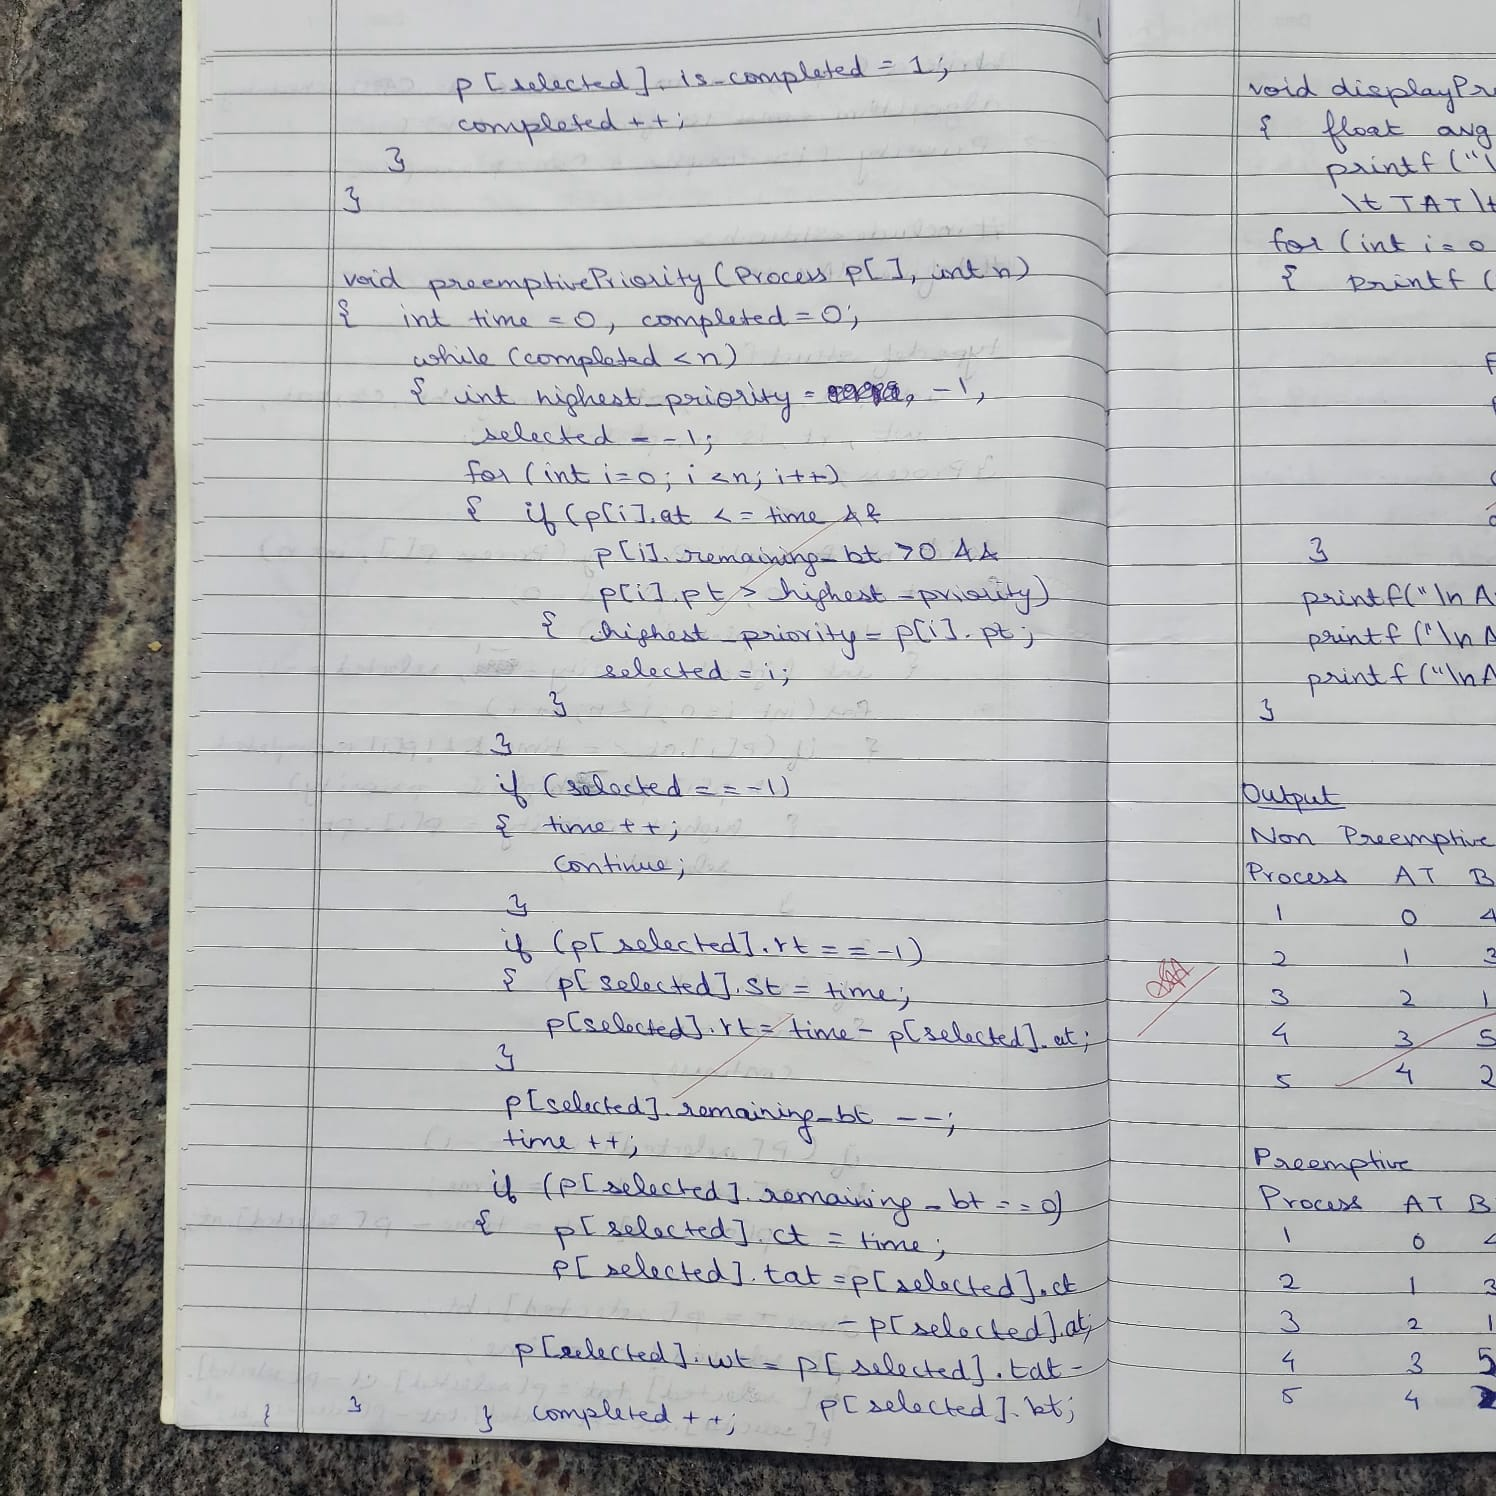 p[selected].is_completed = 1;
completed++;
}
}
void preemptivePriority (Process p[], int n)
{ int time = 0, completed = 0;
while (completed < n)
{ int highest_priority = , -1,
selected = -1;
for (int i=0; i<n; i++)
{ if (p[i].at <= time &&
p[i].remaining_bt >0 &&
p[i].pt > highest_priority)
{ highest_priority = p[i].pt;
selected = i;
}
}
if (selected == -1)
{ time++;
continue;
}
if (p[selected].rt == -1)
{ p[selected].st = time;
p[selected].rt = time - p[selected].at;
}
p[selected].remaining_bt --;
time ++;
if (p[selected].remaining_bt == 0)
{ p[selected].ct = time;
p[selected].tat = p[selected].ct
- p[selected].at;
p[selected].wt = p[selected].tat -
p[selected].bt;
} } } completed ++;
void displayPr
{ float avg
printf ("\
\t TAT \t
for (int i = 0
{ printf (
}
printf("\n A
printf ("\n A
printf ("\n A
}
Output
Non Preemptive
Process AT B
1 0 4
2 1 3
3 2 1
4 3 5
5 4 2
Preemptive
Process AT B
1 0 4
2 1 3
3 2 1
4 3 5
5 4 2